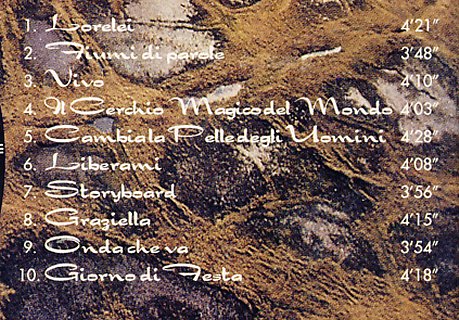 1. Lorelei 4'21"
2. Fiumi di parole 3'48"
3. Vivo 4'10"
4. Il Cerchio Magico del Mondo 4'03"
5. Cambia la Pelle degli Uomini 4'28"
6. Liberami 4'08"
7. Storyboard 3'56"
8. Graziella 4'15"
9. Onda che va 3'54"
10. Giorno di Festa 4'18"